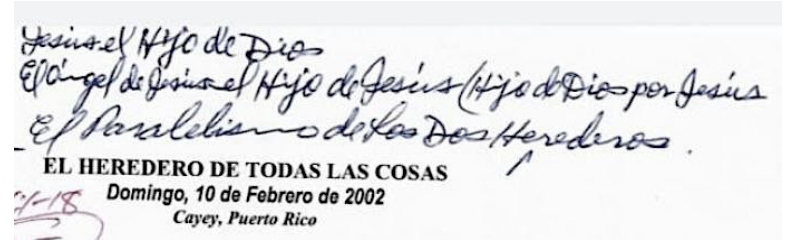 Jesús el Hijo de Dios
El ángel de Jesús el Hijo de Jesús (Hijo de Dios por Jesús
El Paralelismo de los Dos Herederos.
EL HEREDERO DE TODAS LAS COSAS
Domingo, 10 de Febrero de 2002
Cayey, Puerto Rico